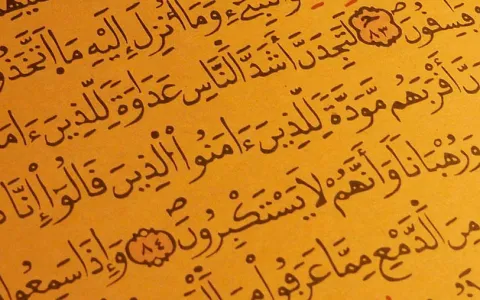 وَمَا أُنزِلَ إِلَيْهِ مَا اَتَّخَذُو
فَسِقُونَ ٨٣ لَتَجِدَنَّ أَشَدَّ اَلنَّاسِ عَدَاوَةً لِّلَّذِينَ ءَامَ
نَّ أَقْرَبَهُم مَّوَدَّةً لِّلَّذِينَ ءَامَنُواْ اُلَّذِينَ قَالُوٓاْ إِنَّا
وَرُهْبَانًا وَأَنَّهُمْ لَا يَسْتَكْبِرُونَ ٨٤ وَإِذَا سَمِعُوا
مِنَ اَلدَّمْعِ مِمَّا عَرَفُواْ مِنَ